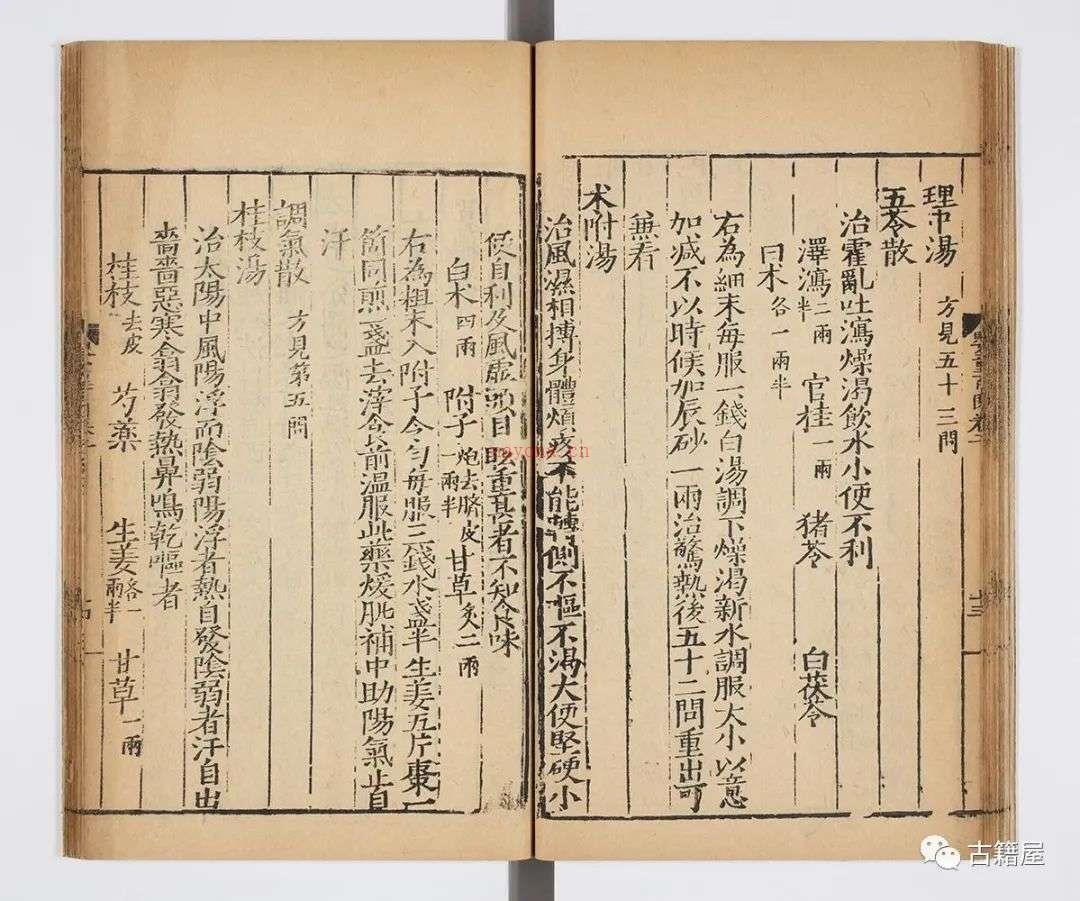 理中湯 方見五十三問
五苓散
治霍亂吐瀉燥渴飲水小便不利
澤瀉二兩 官桂一兩 猪苓 白茯苓
白术各一兩半
右為細末每服一錢白湯調下燥渴新水調服大小以意
加减不以時候加辰砂一兩治驚熱後五十二問重出可
兼看
术附湯
治風濕相搏身體煩疼不能轉側不嘔不渴大便堅硬小
便自利及風虛頭目眩重甚者不知食味
白术四兩 附子炮去臍皮一兩半 甘草炙二兩
右為粗末入附子令勻每服三錢水盞半生姜五片棗一
箇同煎一盞去滓食前溫服此藥煖肌補中助陽氣止自
汗
調氣散 方見第五問
桂枝湯
治太陽中風陽浮而陰弱陽浮者熱自發陰弱者汗自出
嗇嗇惡寒翕翕發熱鼻鳴乾嘔者
桂枝去皮 芍藥 生姜各一兩半 甘草一兩
古籍屋